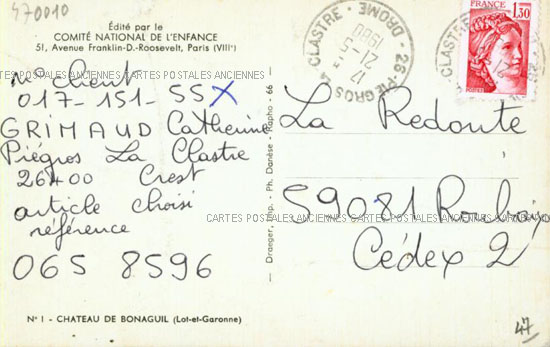 470010
Édité par le
COMITÉ NATIONAL DE L'ENFANCE
51, Avenue Franklin-D.-Roosevelt, Paris (VIIIᵉ)
CARTES POSTALES ANCIENNES CARTES POSTALES ANCIENNES CARTES POSTALES ANCIENNES
n° client
017-151-55X
GRIMAUD Catherine
Piégros La Clastre
26400 Crest
article choisi
référence
065 8596
N° 1 - CHATEAU DE BONAGUIL (Lot-et-Garonne)
Draeger, Imp. - Ph. Danèse - Rapho - 66 -
26 PIEGROS LA CLASTRE DROME
17
21-5
1980
FRANCE
1,30
La Redoute
59081 Roubaix
CARTES POSTALES ANCIENNES CARTES POSTALES ANCIENNES
Cédex 2
47